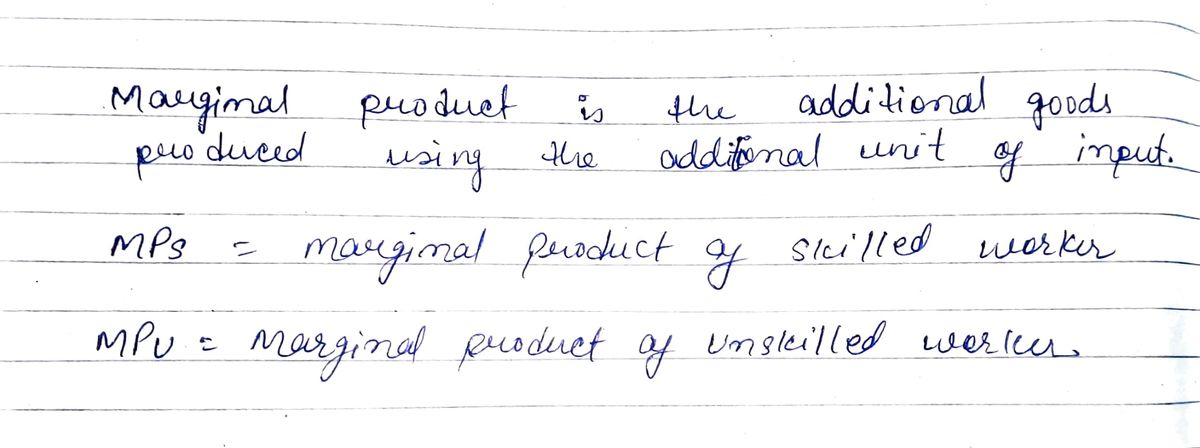 Marginal product is the additional goods
produced using the additional unit of input.
MPS = marginal product of skilled worker
MPU = Marginal product of Unskilled worker.